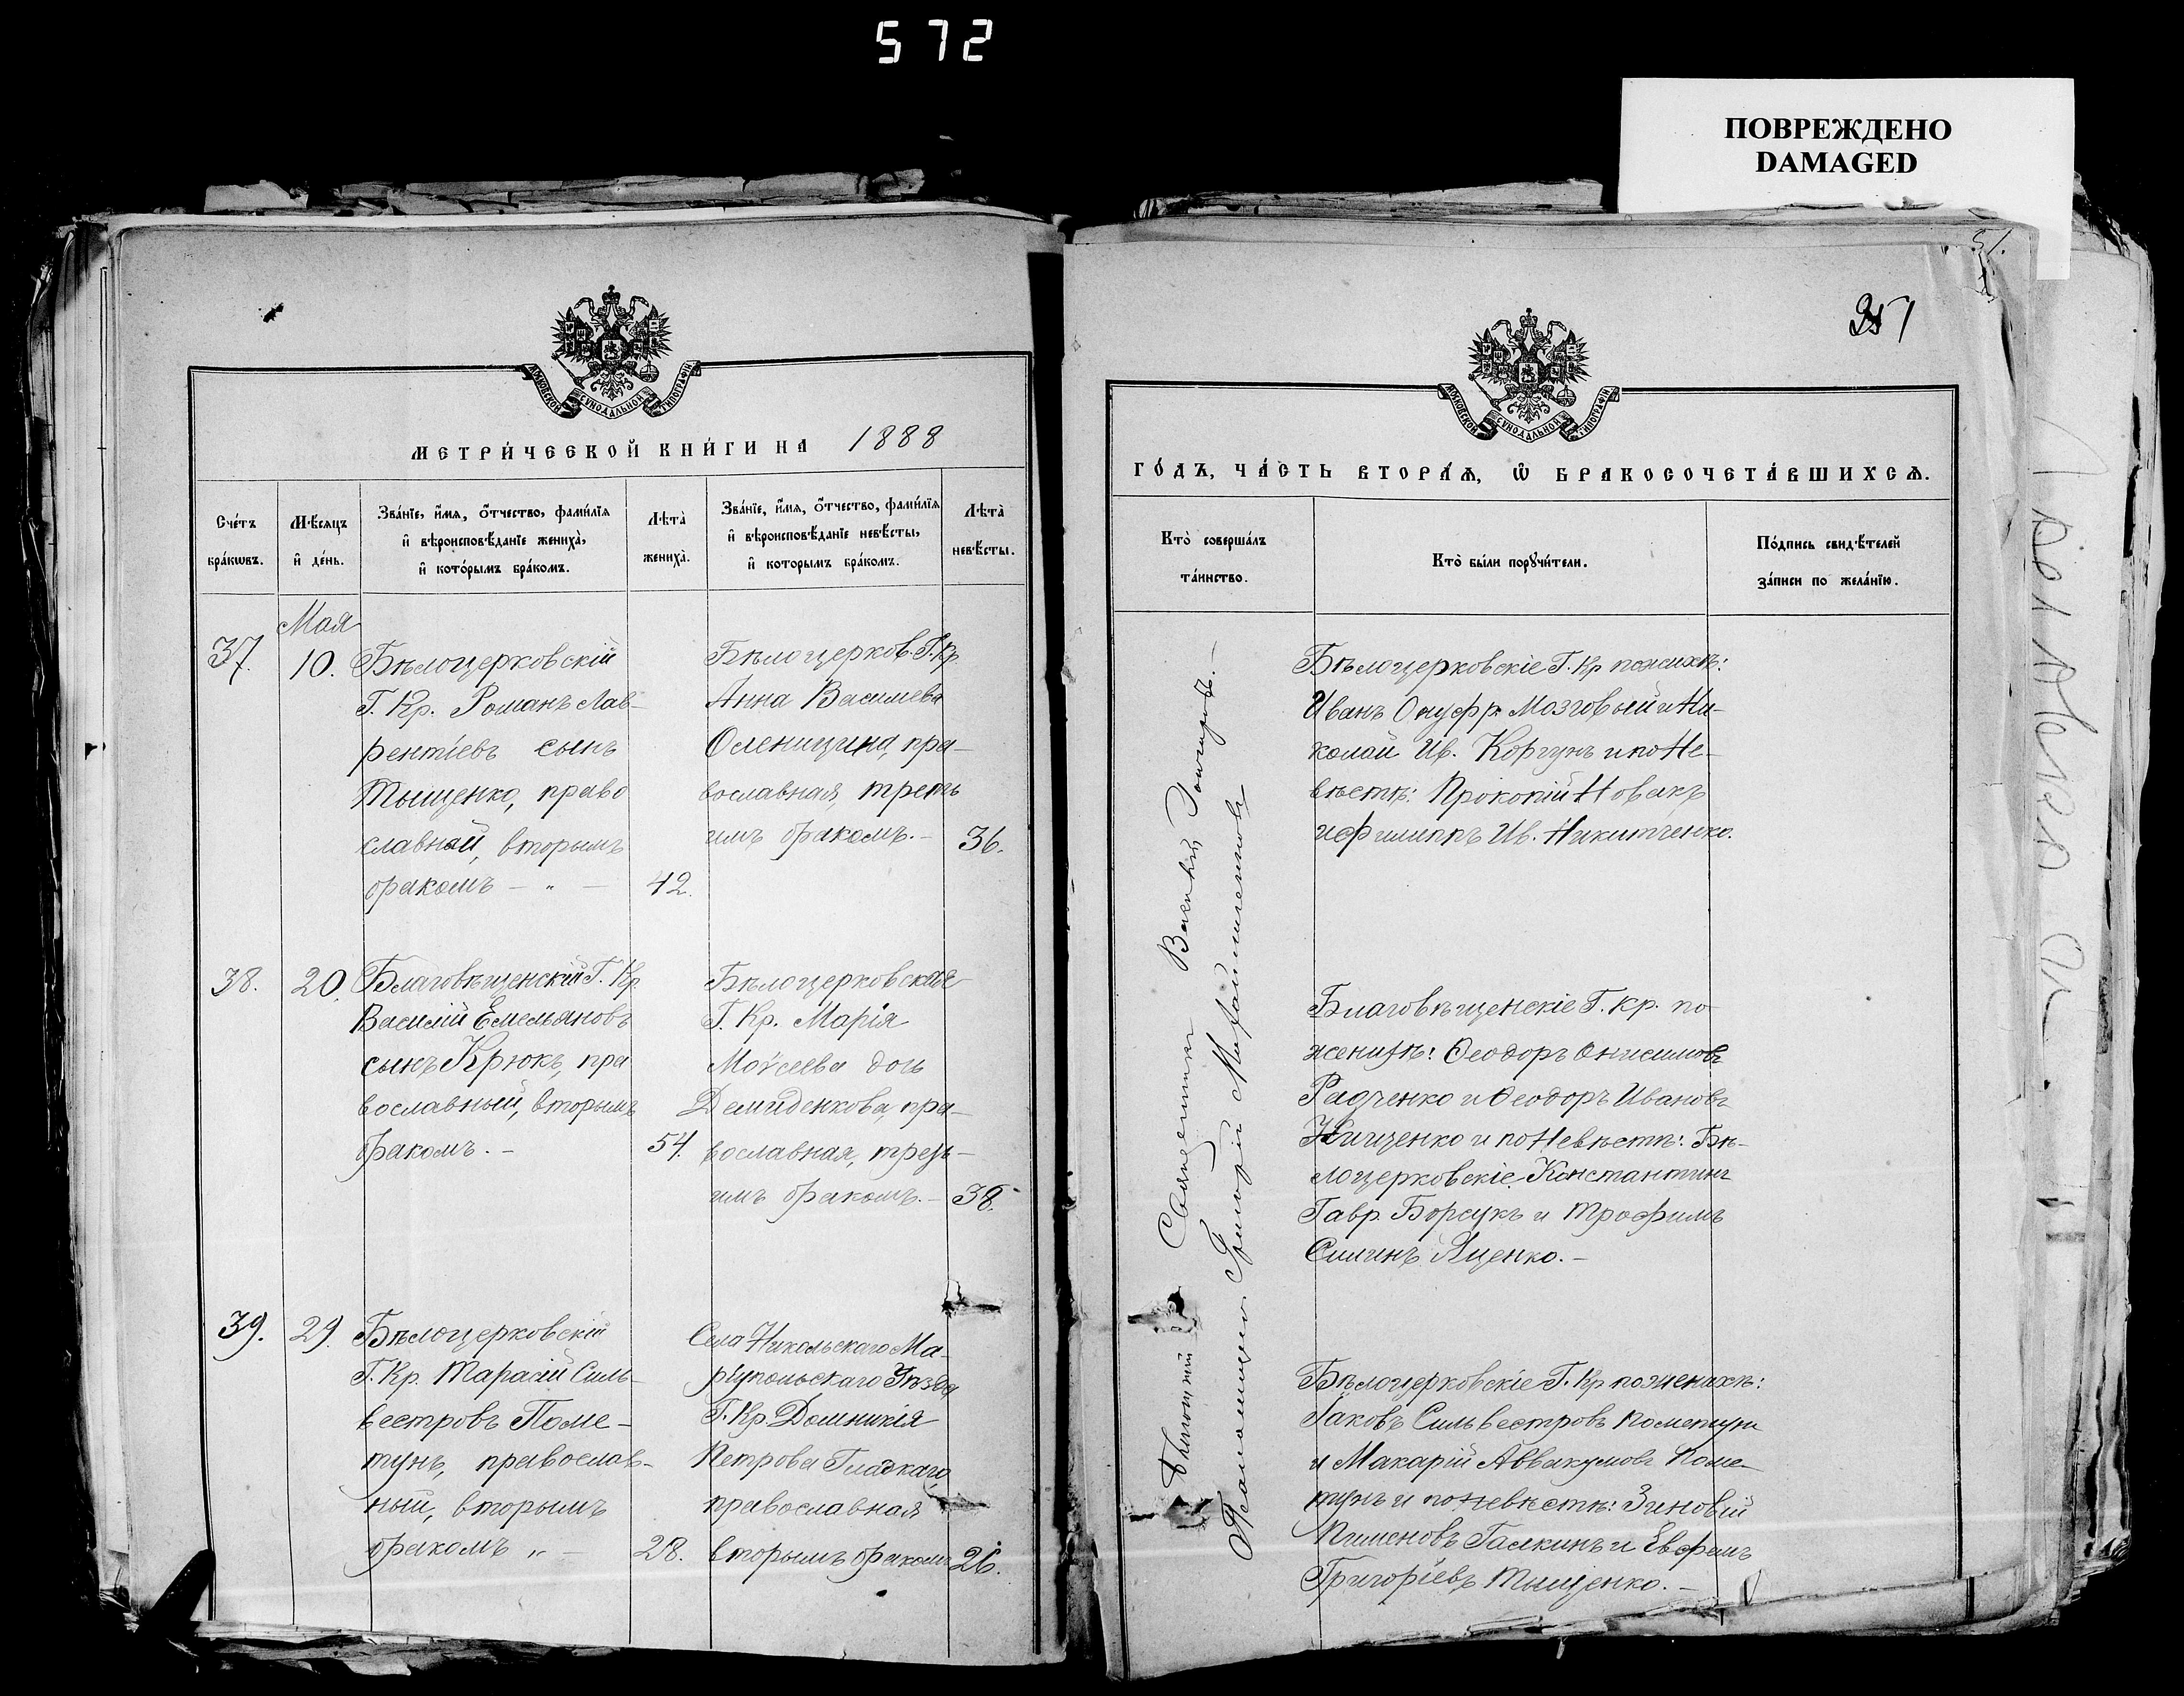 572
ПОВРЕЖДЕНО
DAMAGED
51.
351
МЕТРИ́ЧЕСКОЙ КНИ́ГИ НА 1888
Сче́тъ бра́кωвъ.
Мѣ́сяцъ и҆ де́нь.
Зва́нїе, и҆́мя, ѻ҆́тчество, фами́лїя и҆ вѣроисповѣ́данїе жениха̀, и҆ кото́рымъ бра́комъ.
Лѣта̀ жениха̀.
Зва́нїе, и҆́мя, ѻ҆́тчество, фами́лїя и҆ вѣроисповѣ́данїе невѣ́сты, и҆ которымъ бра́комъ.
Лѣта̀ невѣ́сты.
Мая
37.
10.
Бѣлоцерковскій
Г. Кр. Романъ Лав-
рентіевъ сынъ
Тыщенко, право
славный, вторымъ
бракомъ — „ —
42.
Бѣлоцерков. Г. Кр.
Анна Васильева
Оленицина, пра-
вославная, треть
имъ бракомъ. —
36.
38.
20.
Благовѣщенскій Г. Кр
Василій Емельяновъ
сынъ Крюкъ, пра
вославный, вторымъ
бракомъ. —
54.
Бѣлоцерковская
Г. Кр. Марія
Моѵсеева дочь
Демиденкова, пра-
вославная, треть-
имъ бракомъ. —
38.
39.
29.
Бѣлоцерковскій
Г. Кр. Тарасій Силь-
вестровъ Поме-
тунъ, православ-
ный, вторымъ
бракомъ „ —
28.
Села Никольскаго Ма-
ріупольскаго Уѣзда
Г. Кр. Домникія
Петрова Гладкаго,
православная
вторымъ бракомъ
26.
ГО́ДЪ, ЧА́СТЬ ВТОРА́Ѧ, Ѽ БРАКОСОЧЕТА́ВШИХСѦ.
Кто̀ соверша́лъ та́инство.
Кто̀ бы́ли порꙋчи́тели.
По́дпись свидѣ́телей за́писи по жела́нїю.
Священникъ Василій
Псаломщикъ Григорій
Бѣлоцерковскіе Г. Кр по жнихѣ:
Иванъ Онуфр. Мозговый и Ни-
колай Ив. Коргунъ и по Не-
вѣстѣ: Прокопій Новакъ
и Филиппъ Ив. Никитченко.
Благовѣщенскіе Г. Кр. по
женихѣ: Ѳеодоръ Онисимовъ
Радченко и Ѳеодоръ Ивановъ
Нищенко и по Невѣстѣ: Бѣ-
лоцерковскіе Константинъ
Гавр. Борсукъ и Трофимъ
Силинъ Яценко. —
Бѣлоцерковскіе Г. Кр по женихѣ:
Іаковъ Сильвестровъ Пометунъ
и Макарій Аввакумовъ Поме-
тунъ и по невѣстѣ: Зиновій
Пименовъ Галкинъ и Евфимъ
Григоріевъ Тыщенко. —